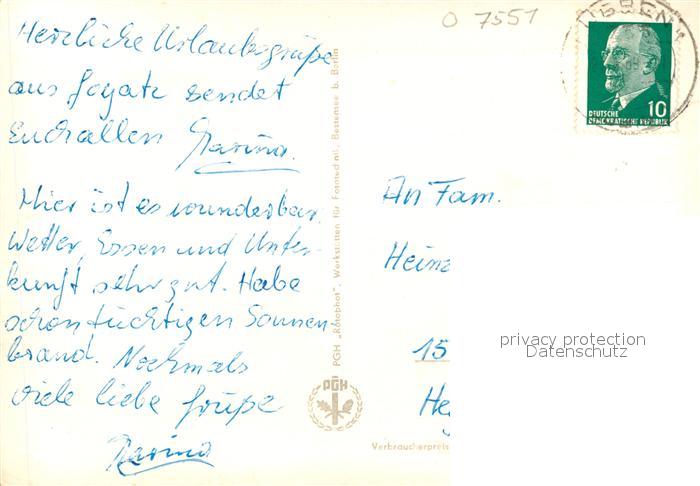 Herzliche Urlaubsgrüße
aus Goyatz sendet
Euch allen Marina.
Hier ist es wunderbar.
Wetter, Essen und Unter-
kunft sehr gut. Habe
schon tüchtigen Sonnen-
brand. Nochmals
viele liebe Grüße
Marina
PGH „Rotophot", Werkstätten für Fototechnik, Bestensee b. Berlin
PGH
Verbraucherpreis
O 7551
DEUTSCHE
DEMOKRATISCHE REPUBLIK
10
An Fam.
Heinz
15
privacy protection
Datenschutz